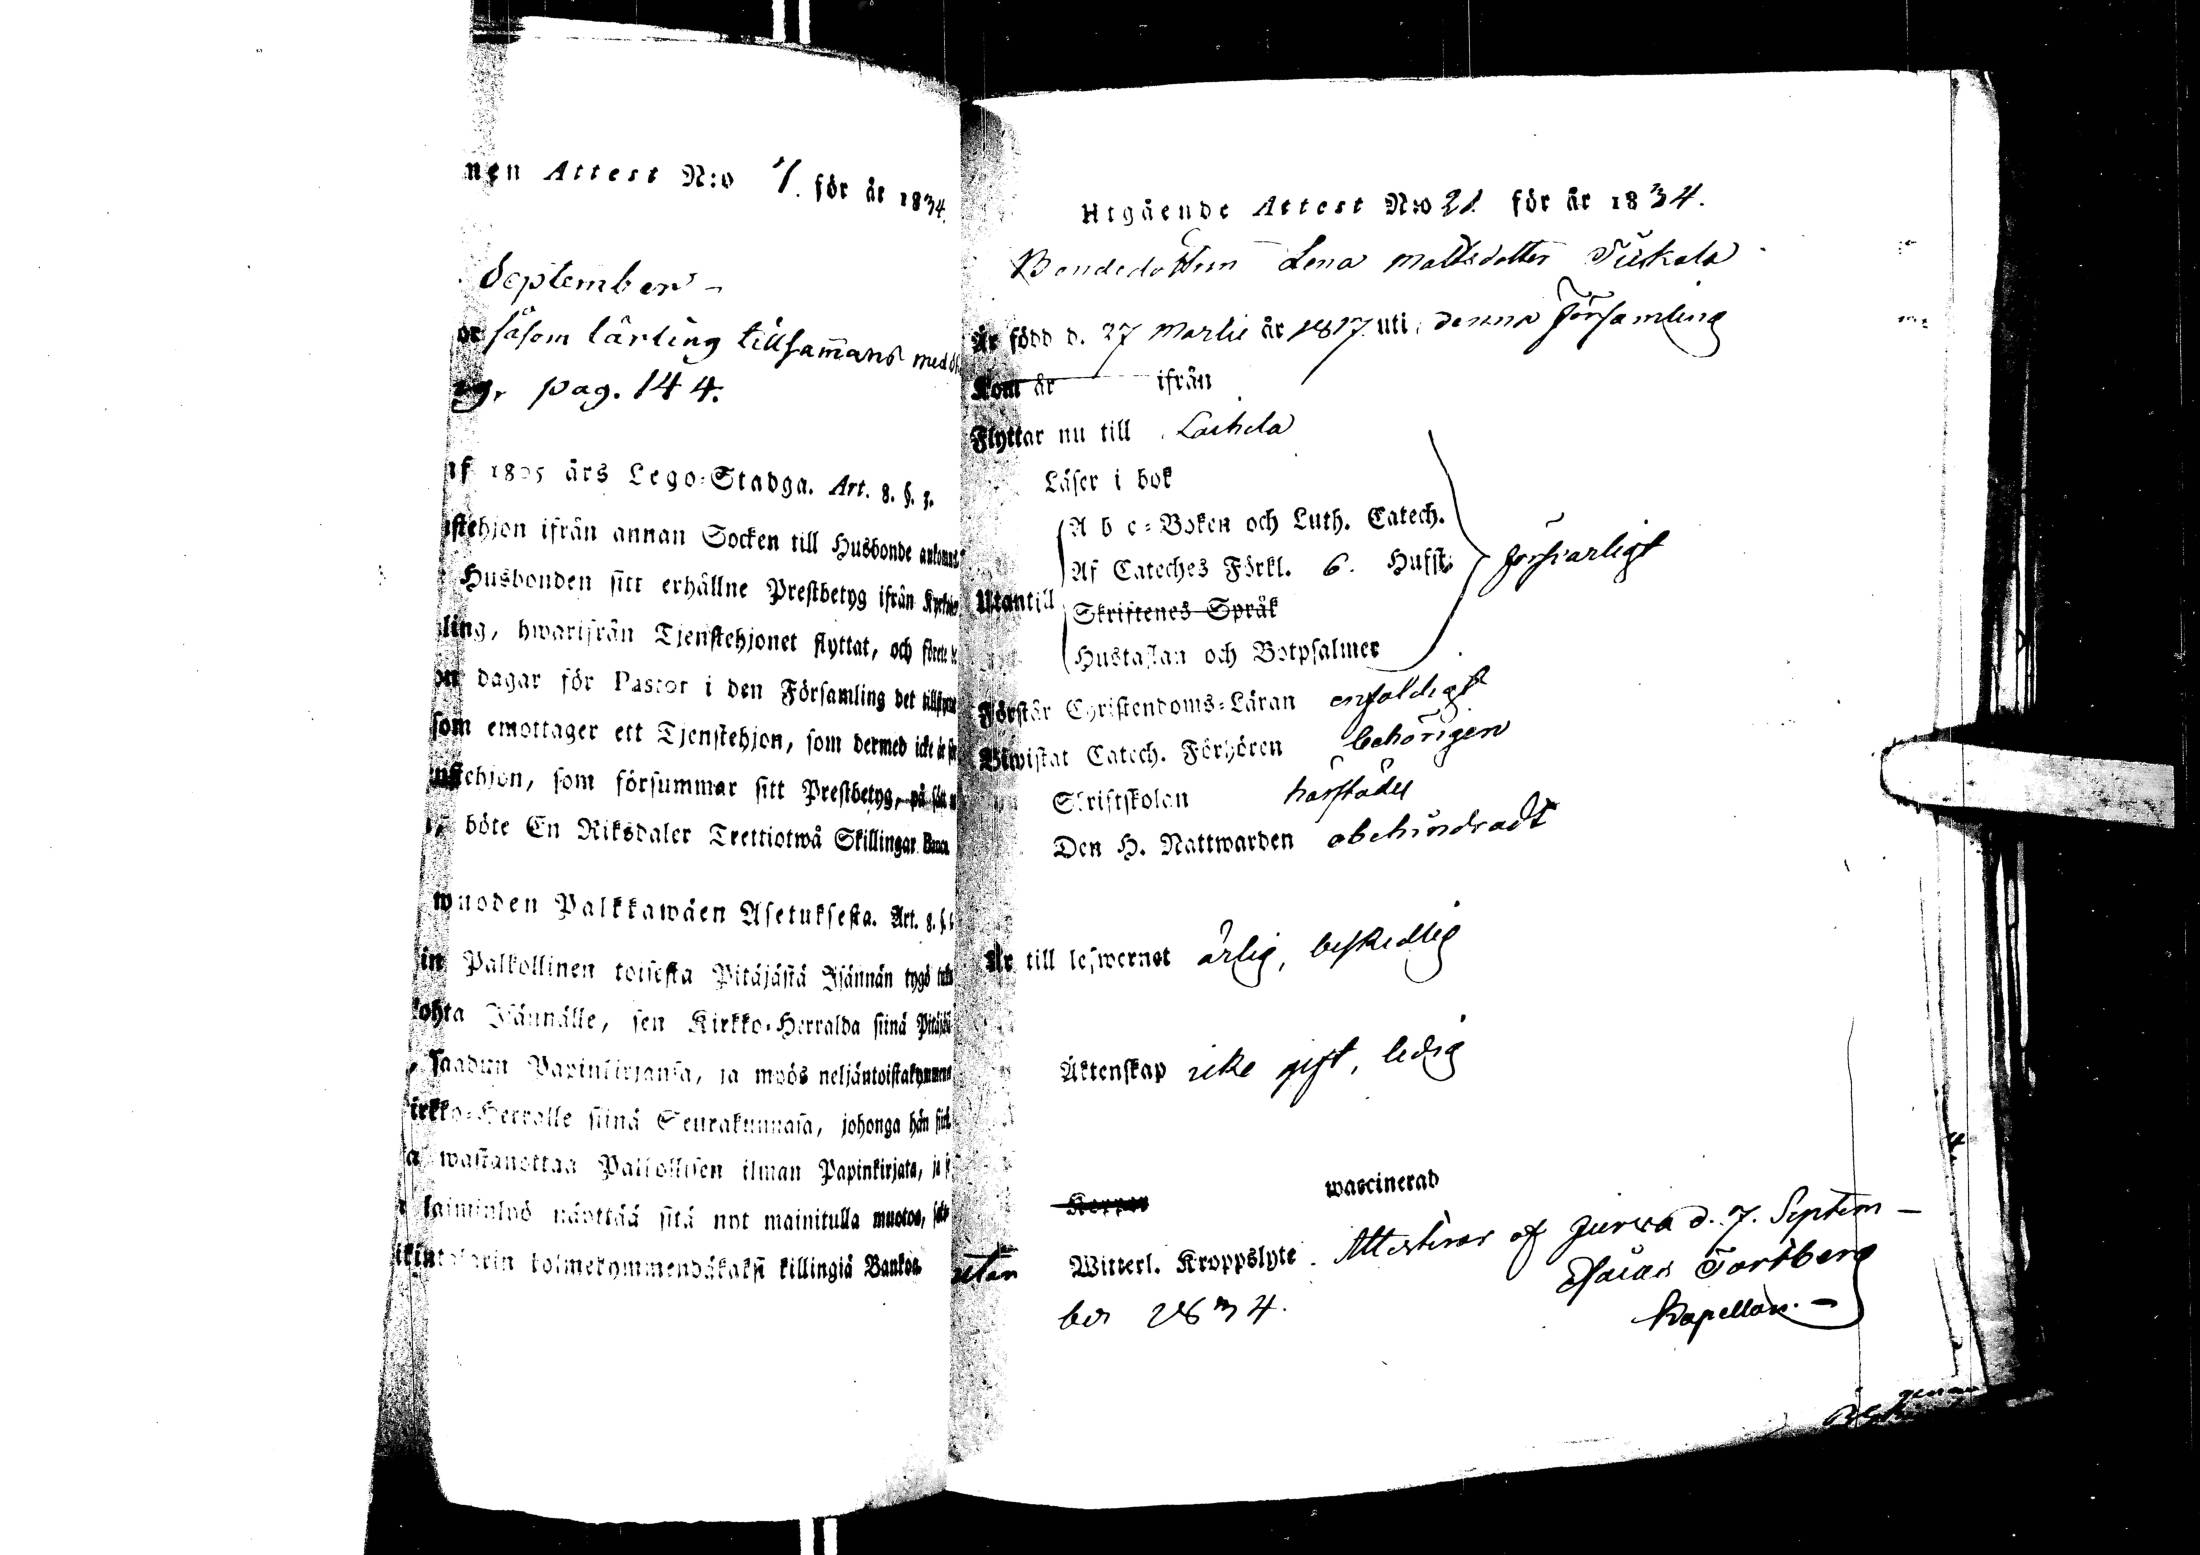 nen Attest N:o 7. för år 1834.
September
såsom lärling tillsamans med
pag. 144.
af 1805 års Lego-Stadga. Art. 8. §. 3.
stehjon ifrån annan Socken till Husbonde
Husbonden sitt erhållne Prestbetyg ifrån
ling, hwarifrån Tjenstehjonet flyttat, och förete
dagar för Pastor i den Församling det
som emottager ett Tjenstehjon, som dermed icke är
nstehjon, som försummar sitt Prestbetyg, på
böte En Riksdaler Trettiotwå Skillingar Banco.
wuoden Palkkawäen Asetuksesta. Art. 8. §.
in Palkollinen toisesta Pitäjästä Isännän tygö
kohta Isännälle, sen Kirkko-Herralda siinä
saadun Papinkirjansa, ja myös neljäntoistakymmenen
irkko-Herralle siinä Seurakunnasa, johonga hän
wastanottaa Palkollisen ilman Papinkirjata, ja
laiminlyö näyttää sitä nyt mainitulla muotoa,
kolmekymmendäkaksi killingiä Bankoa.
Utgående Attest N:o 21. för år 1834.
Bondedottern Lena Mattsdotter Tuskala
Är född d. 27 Martii år 1817. uti denna Församling
Kom år ifrån
Flyttar nu till Laihela
Läser i bok
A b c-Boken och Luth. Catech.
Af Cateches Förkl. 6. Hufst. försvarligt
Utantill
Skriftenes Språk
Hustaflan och Botpsalmer
Förstår Christendoms-Läran enfaldigt
Biwistat Catech. Förhören behörigen
Skriftskolan härstädes
Den H. Nattwarden obehindradt
Är till lefwernet ärlig, beskedlig
Äktenskap icke gift, ledig
Koppor waccinerad
utan Witterl. Kroppslyte. Attesterar af Jurva d. 7. Septem-
ber 1834. Esaias Fortberg
Kapellan.